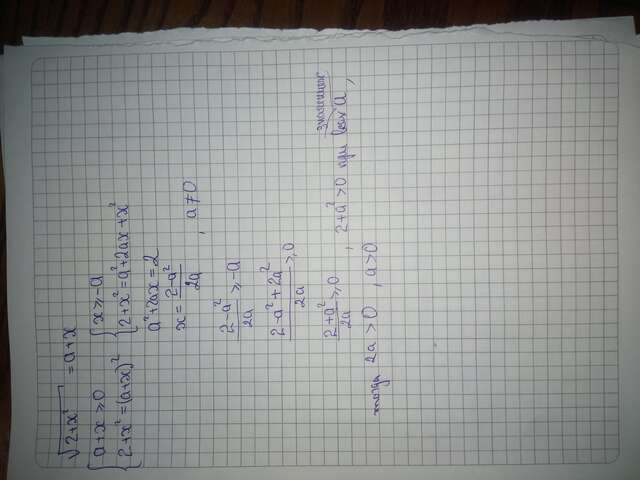 √2+x² = a+x
{ a+x ≥ 0
{ 2+x² = (a+x)²
{ x ≥ -a
{ 2+x² = a²+2ax+x²
a²+2ax = 2
x = (2-a²)/2a , a≠0
(2-a²)/2a ≥ -a
(2-a²+2a²)/2a ≥ 0
(2+a²)/2a ≥ 0 , 2+a² > 0 при всех значениях a,
тогда 2a > 0 , a > 0